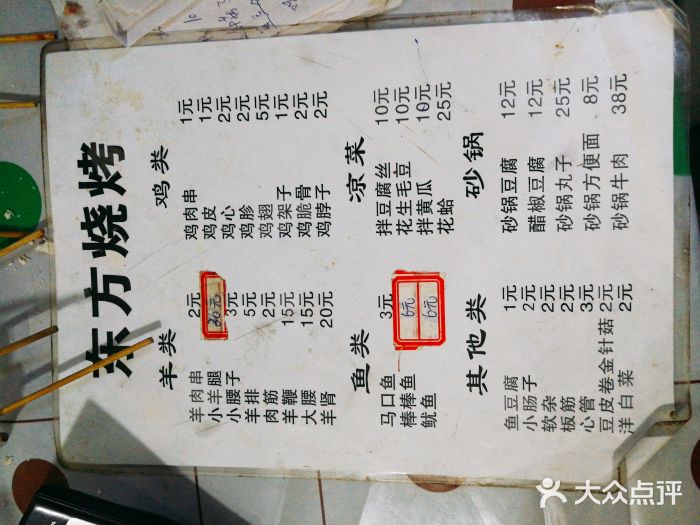 东方烧烤
羊类
羊肉串 2元
小羊腿 30元
小腰子 3元
羊排 5元
肉筋 2元
羊鞭 15元
大腰 15元
羊肾 20元
鸡类
鸡肉串 1元
鸡皮 1元
鸡心 2元
鸡胗 2元
鸡翅 5元
鸡架子 1元
鸡脆骨 2元
鸡脖子 2元
鱼类
马口鱼 3元
棒棒鱼 6元
鱿鱼 6元
凉菜
拌豆腐丝 10元
花生毛豆 10元
拌黄瓜 10元
花蛤 25元
其他类
鱼豆腐 1元
小肠子 2元
软杂 2元
板筋 2元
心管 3元
豆皮卷金针菇 2元
洋白菜 2元
砂锅
砂锅豆腐 12元
醋椒豆腐 12元
砂锅丸子 25元
砂锅方便面 8元
砂锅牛肉 38元
大众点评